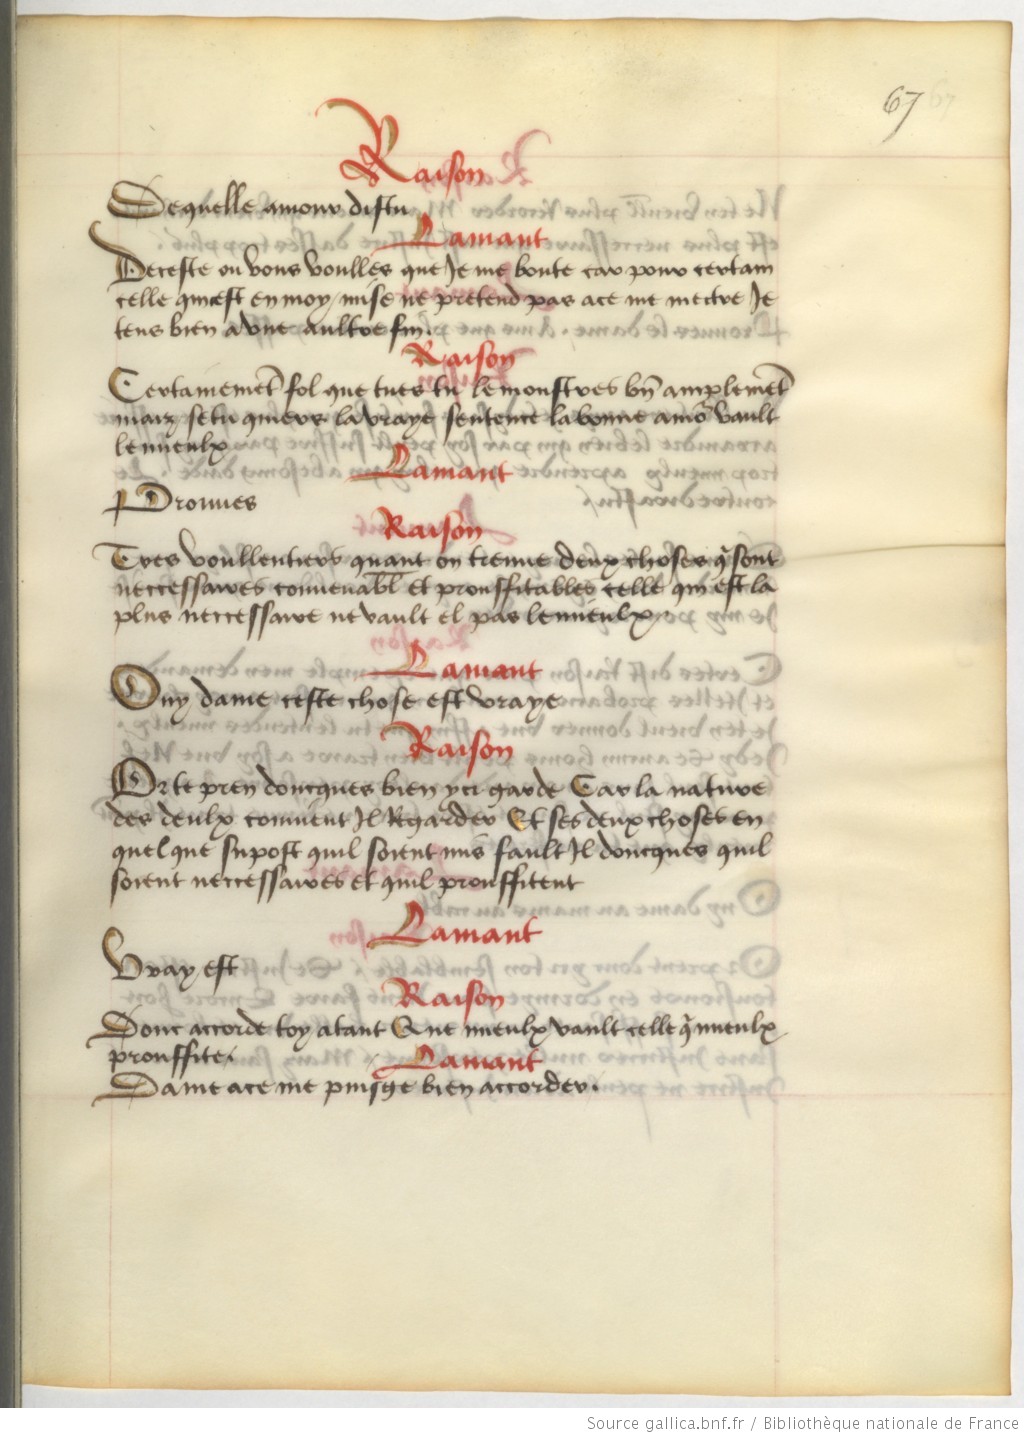 67
Raison
De quelle amour distu
Lamant
De ceste ou vous voulles que Je me boute car pour certain
celle qui est en moy mise ne pretend pas a ce me mectre Je
tens bien a une aultre fin.
Raison
Certainemēt fol que tu es tu le monstres bn̄ amplemēt
maiz se tu quiers la vraye sentence la bonne amo᷑ vault
le mieulx
Lamant
Prouves
Raison
Tres voullentiers quant on treuve deux choses q̄ sont
neccessaires convenabl̄ et prouffitables celle qui est la
plus neccessaire ne vault el pas le mieulx
Lamant
Ouy dame ceste chose est vraye
Raison
Or te pren doncques bien ycy garde Car la nature
des deulx convient Il Regarder Et ses deux choses en
quelque supost quil soient mis fault Il doncques quil
soient neccessaires et quil prouffitent
Lamant
Vray est
Raison
Donc accorde toy atant Que mieulx vault celle q̄ mieulx
prouffite.
Lamant
Dame a ce me puisge bien accorder.
Source gallica.bnf.fr / Bibliothèque nationale de France